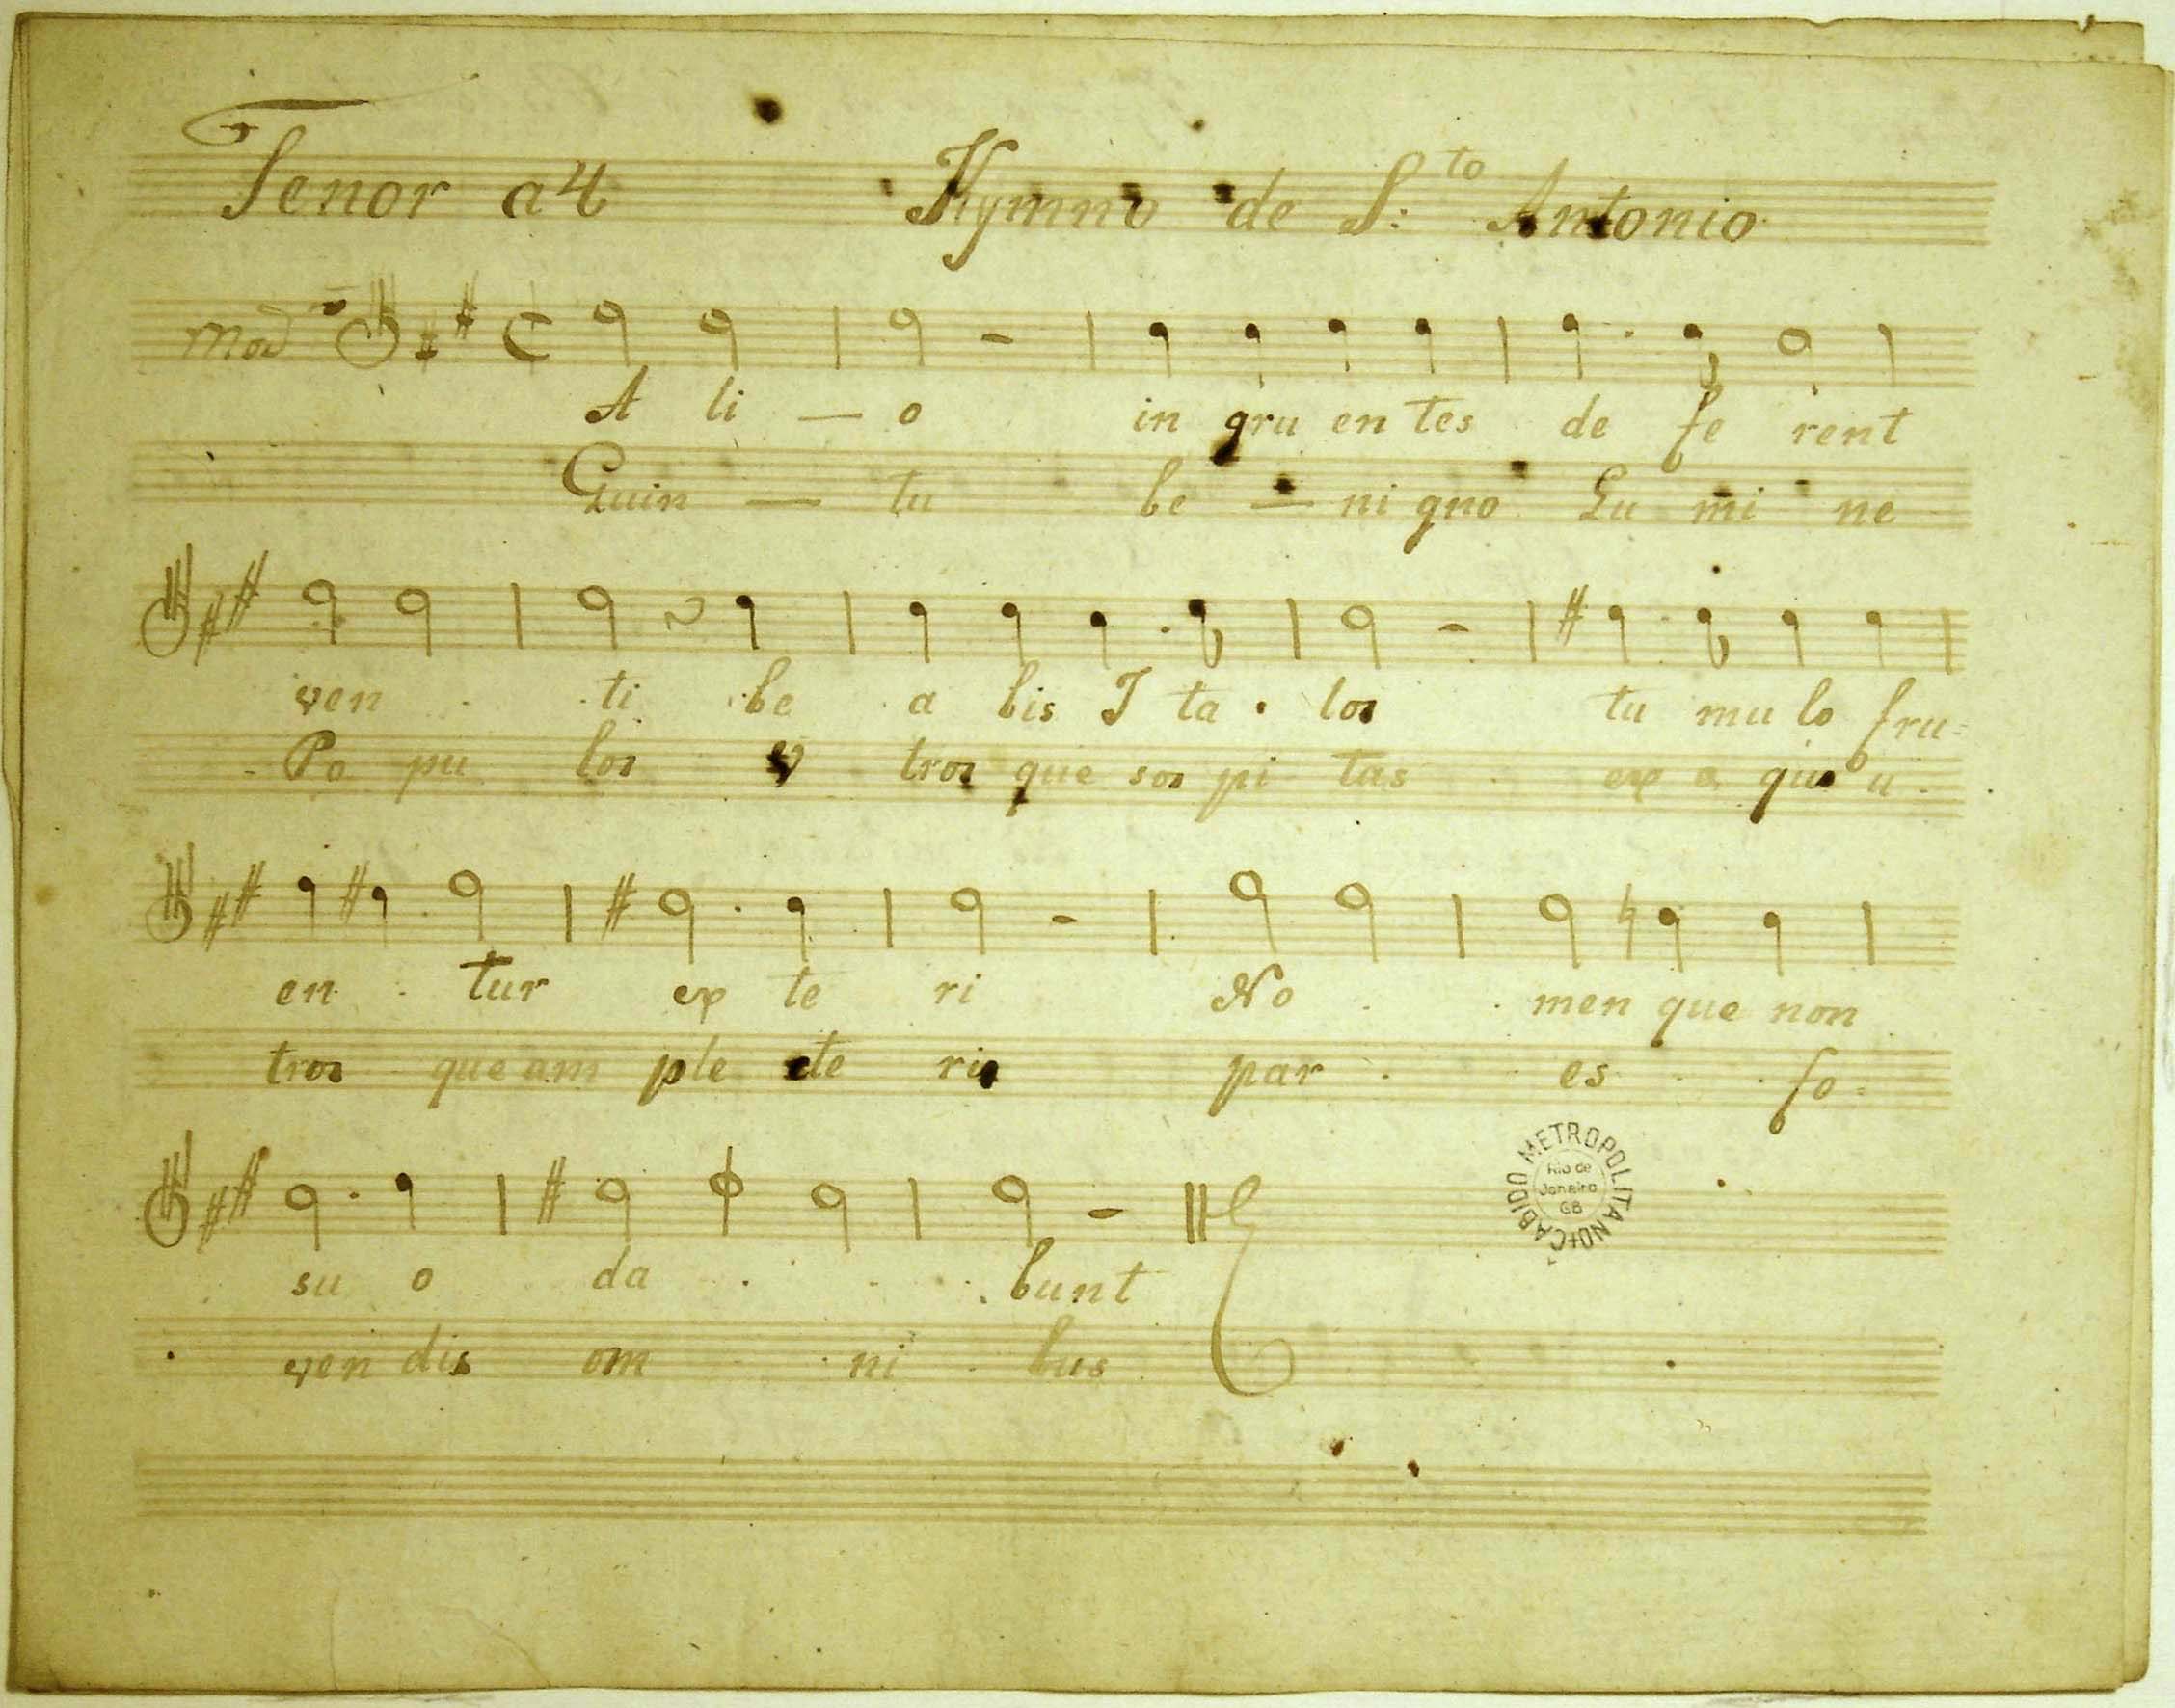 Tenor a4 Hymno de S.to Antonio
Mod.to
A li — o in gru en tes de fe rent
Quin — tu be — ni gno Lu mi ne
ven . . ti be a bis I ta . los tu mu lo fru-
Po pu los V tros que sos pi tas ex a quo u .
en . tur ex te ri No . . men que non
tros que am ple cte ris par . es . . fo-
su o da . . . bunt
ven dis om . ni . bus
CABIDO METROPOLITANO
Rio de
Janeiro
GB